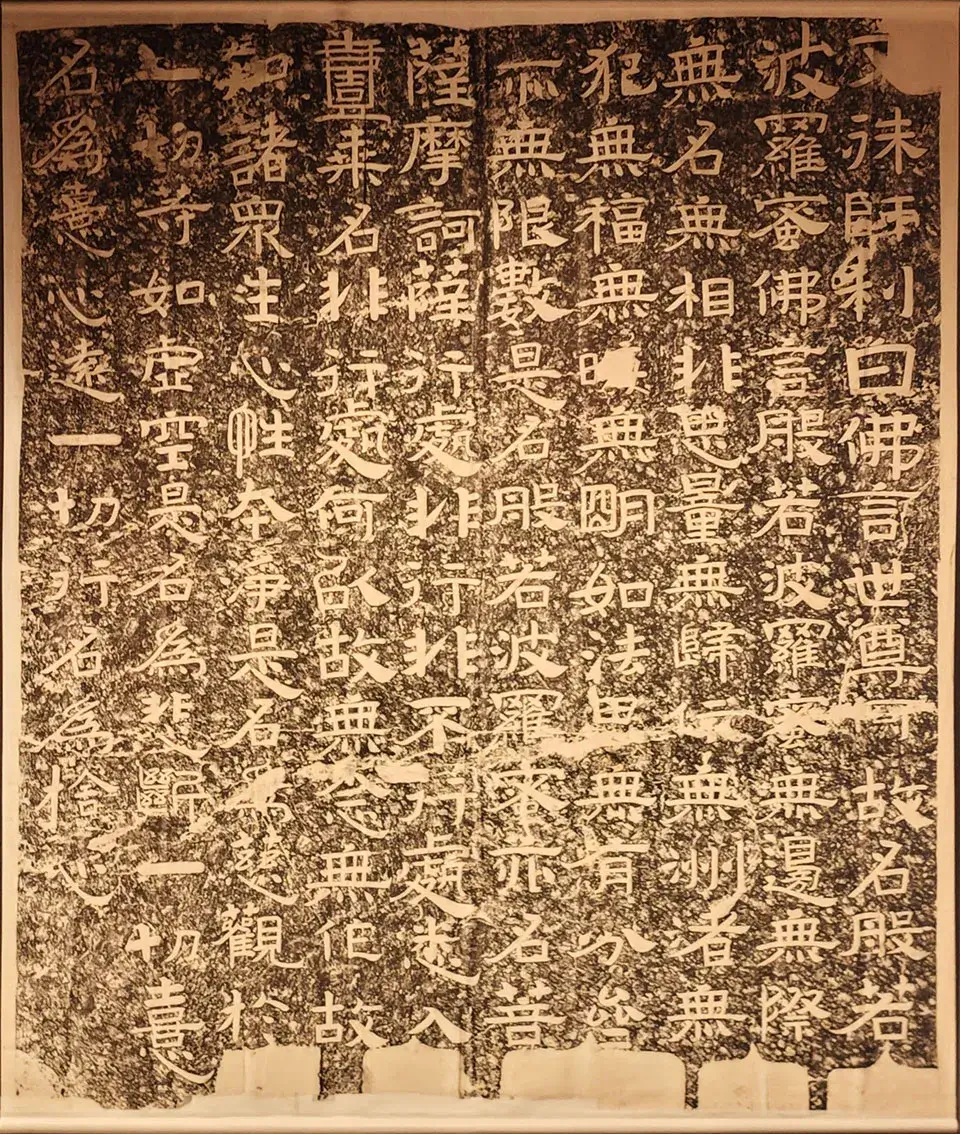 文殊師利曰佛言世尊何故名般若
波羅蜜佛言般若波羅蜜無邊無際
無名無相非思量無歸依無洲者無
犯無福無無明如法界無有分齊
亦無限數是名般若波羅蜜亦名菩
薩摩訶薩行處非行非不行處悉入
壹乘名非行處何以故無念無作故
如諸眾生心性本淨是名為慈觀於
一切等如虛空是名為悲斷一切喜
名為喜心遠一切行名為捨心